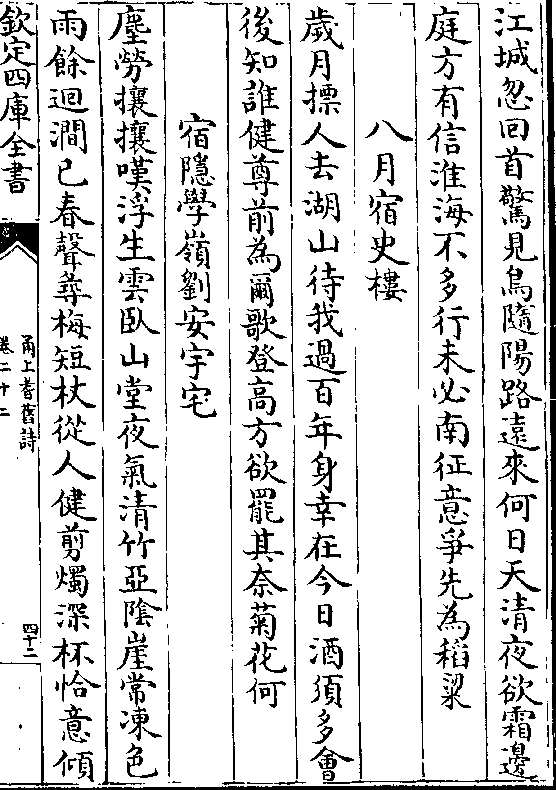 江城忽回首驚見鳥隨陽路遠來何日天清夜欲霜邊
庭方有信淮海不多行未必南征意爭先為稻粱
八月宿史樓
歲月摽人去湖山待我過百年身幸在今日酒須多會
後知誰健尊前為爾歌登高方欲罷其奈菊花何
宿隱學嶺劉安宇宅
塵勞攘攘嘆浮生雲臥山堂夜氣清竹亞陰崖常凍色
雨餘迴澗已春聲尋梅短杖從人健剪燭深杯恰意傾
欽定四庫全書
甬上耆舊詩
卷二十二
四十二